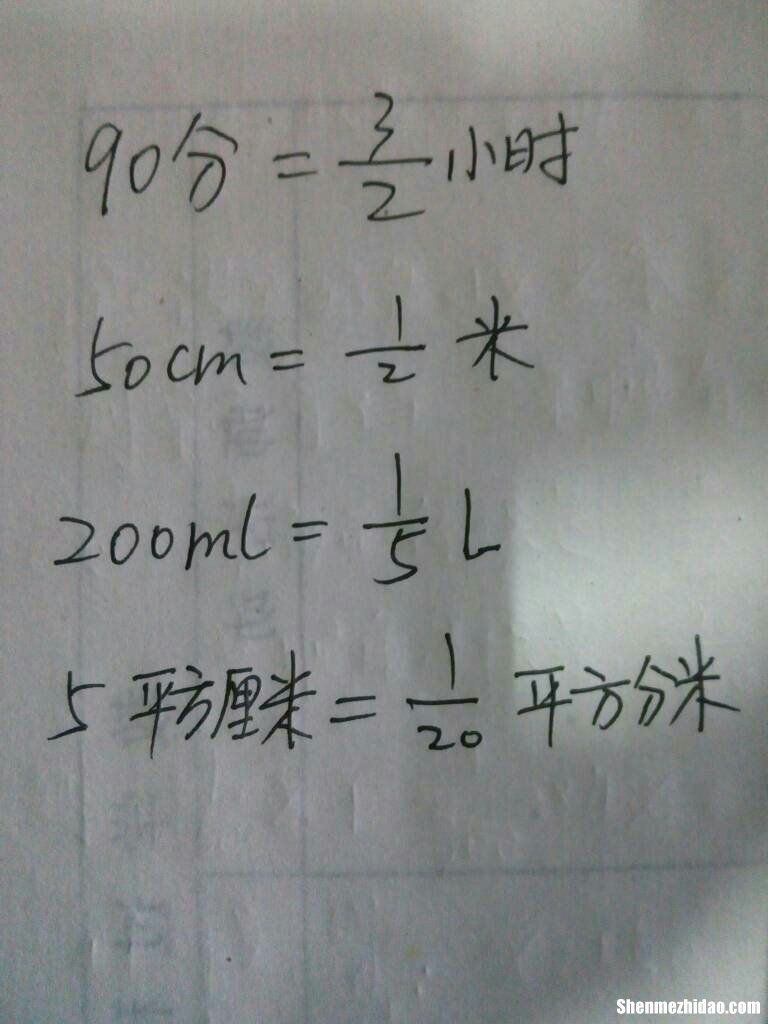 90分 = 3/2 小时
50cm = 1/2 米
200ml = 1/5 L
5 平方厘米 = 1/20 平方分米
Shenmezhidao.com